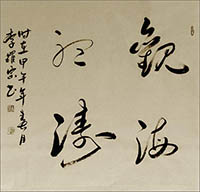 觀海
聽濤
時在甲午年春月
李躍宗書